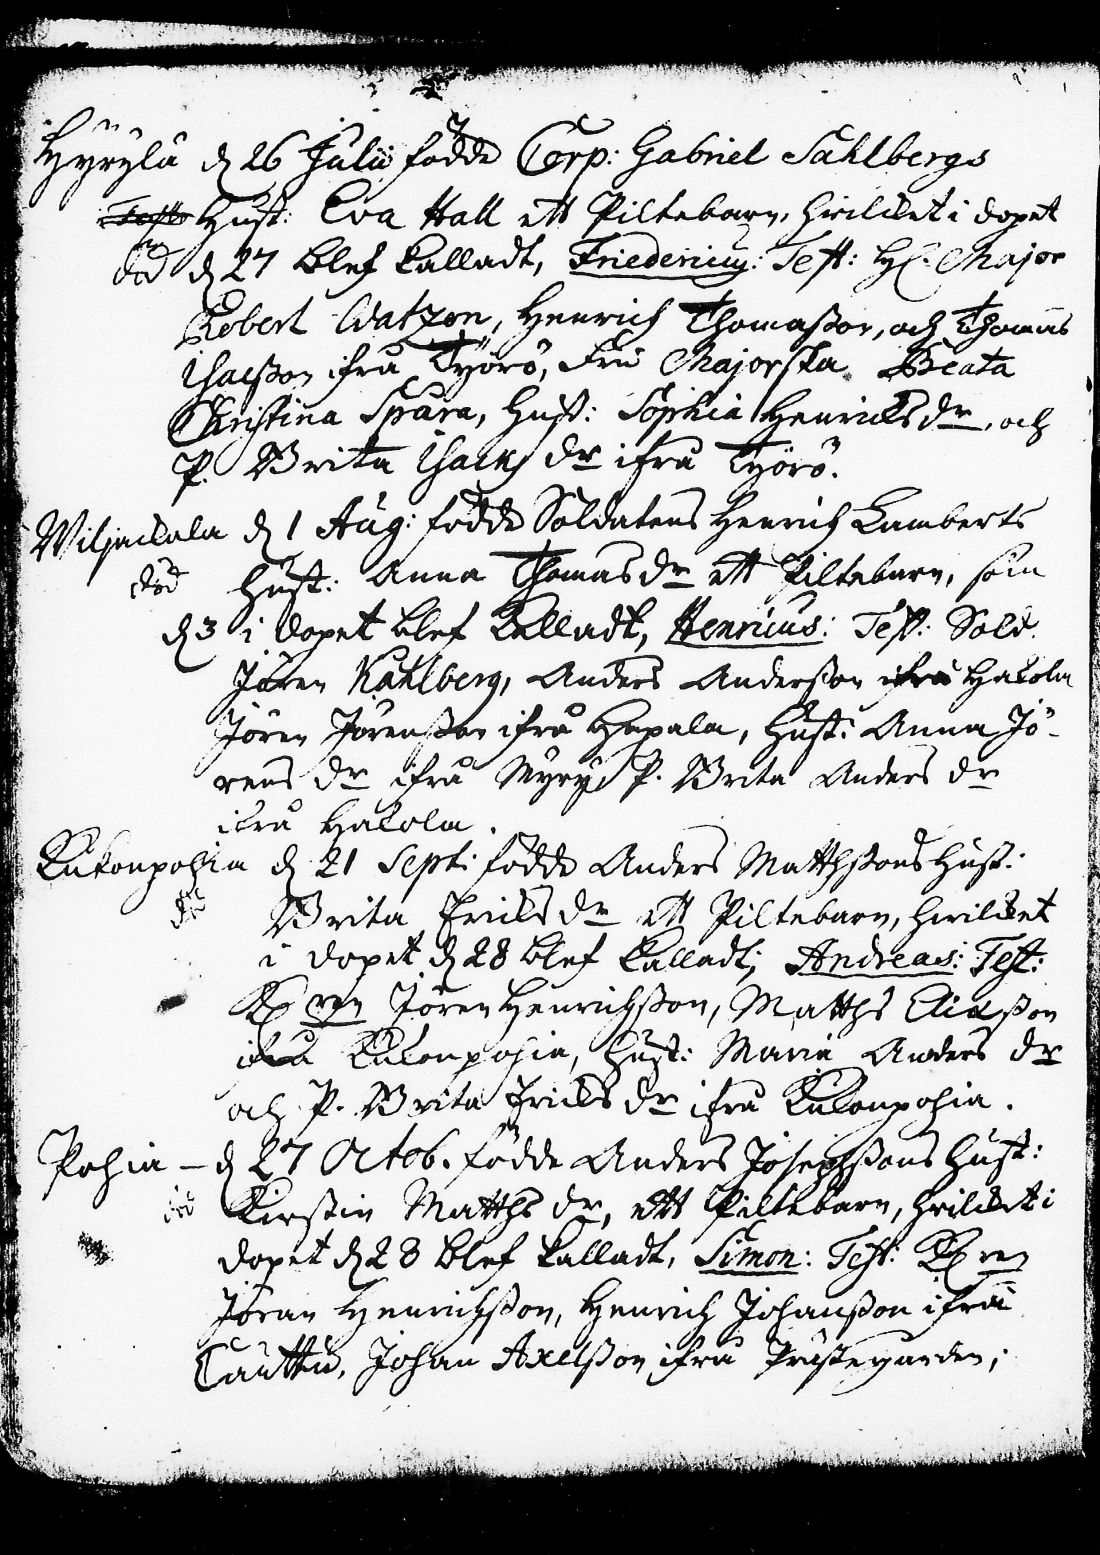 Hyrylä d 26 Julii födde Corp: Gabriel Sahlbergs
Hust: Eva Hall ett Piltebarn, hvilcket i dopet
död d 27 blef kalladt, Fridericus: Test: H: Major
Robert Watzon, Henrich Thomaßon, och Thomas
Isacßon ifrå Työrö, Fru Majorska Beata
Christina Spåra, Hust: Sophia Henricksdr, och
P. Brita Isacks dr ifrå Työrö.
Wiljackala d 1 Aug: födde Soldatens Henrich Lamberts
död Hust: Anna Thomasdr ett Piltebarn, som
d 3 i dopet blef kalladt, Henricus: Test: Sold.
Jören Kahlberg, Anders Anderßon ifrå Hakola
Jören Jörenßon ifrå Hapala, Hust: Anna Jö-
rens dr ifrå Myry P. Brita Anders dr
ifrå Hakola.
Kukonpohia d 21 Sept: födde Anders Matthßons Hust:
död Brita Ericksdr ett Piltebarn, hvilcket
i dopet d 28 blef kalladt, Andreas: Test:
Jören Henrichßon, Matths Eliæßon
ifrå Kukonpohia, Hust: Maria Anders dr
och P. Brita Ericks dr ifrå Kukonpohia.
Pohia – d 27 Octob. födde Anders Josephßons Hust:
död Kirstin Matths dr, ett Piltebarn, hvilcket i
dopet d 28 blef kalladt, Simon: Test:
Jöran Henrichßon, Henrich Johanßon ifrå
Cauttu, Johan Axelßon ifrå Prästegården;